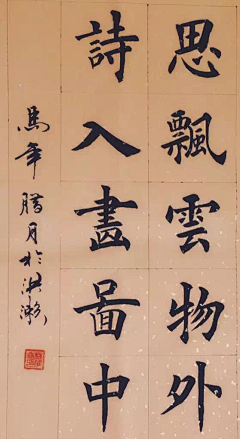 思飄雲物外
詩入畫圖中
馬年臘月於洪瀨